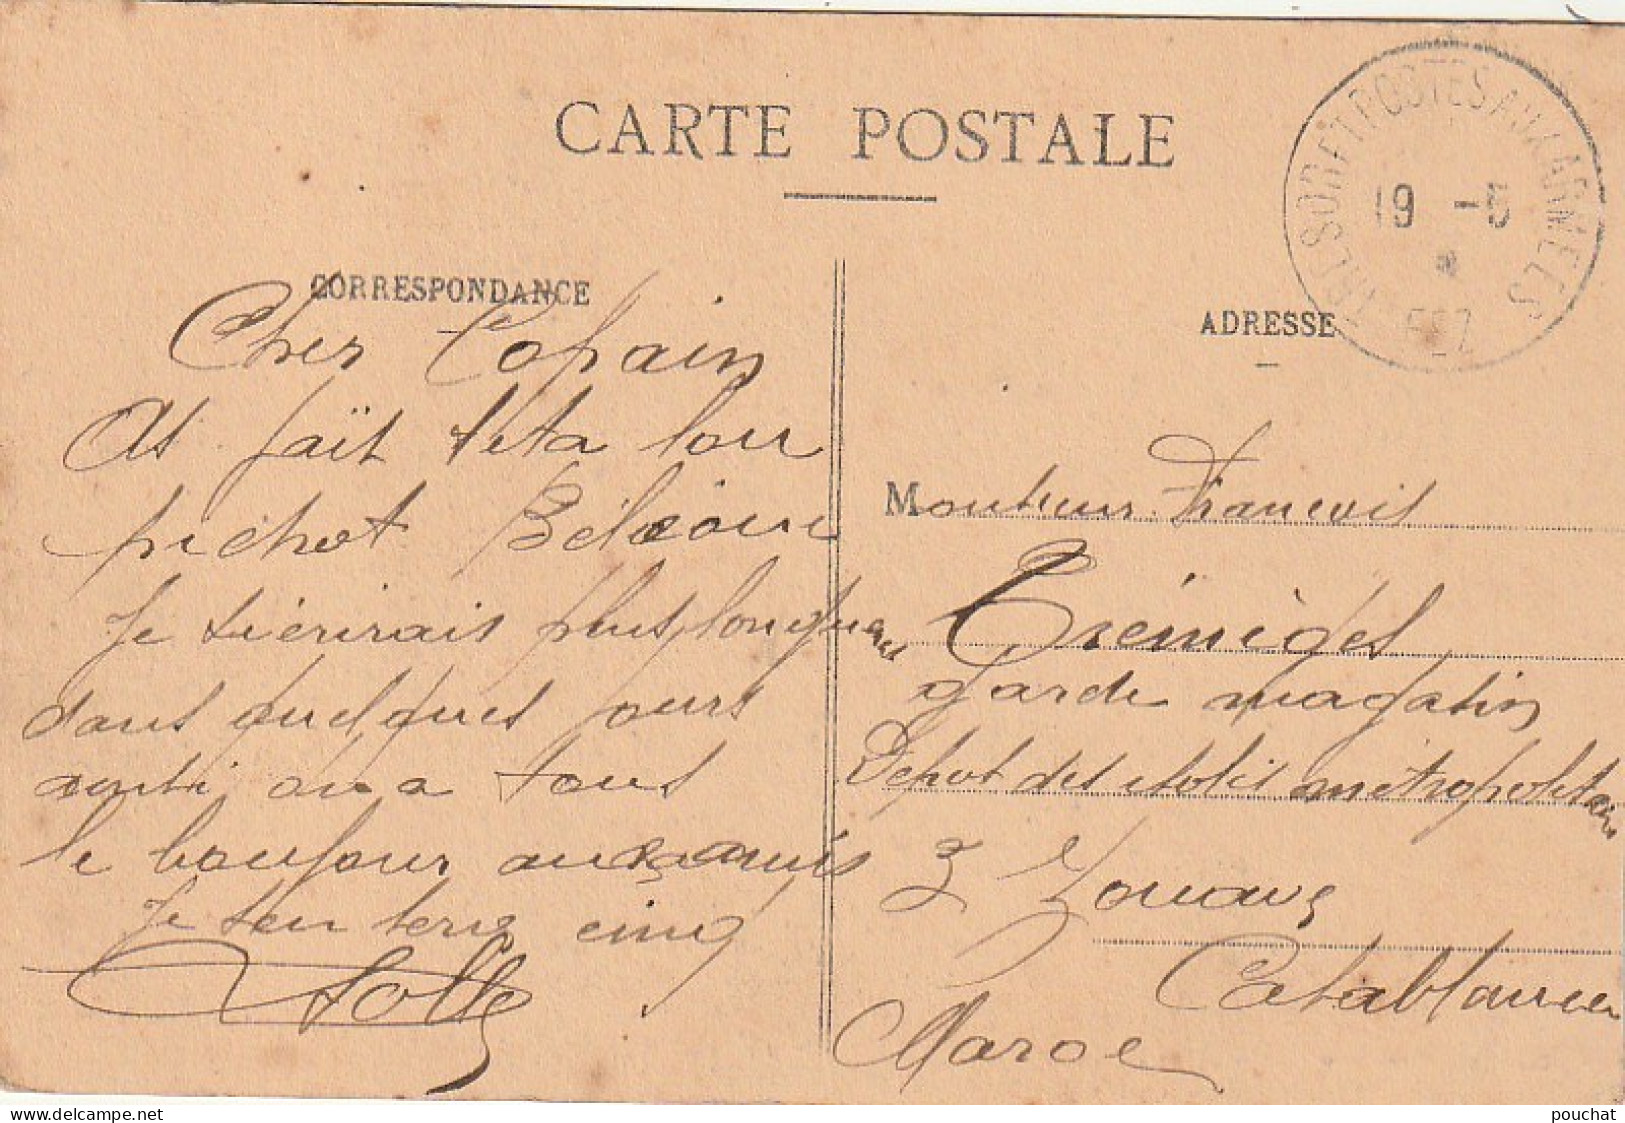 CARTE POSTALE
TRESOR ET POSTES AUX ARMEES
19 -5
*
FEZ
CORRESPONDANCE
Cher Copain
As faït teta lou
pichot
Je t'ecrirais plus longuement
dans quelques jours
a tous
le bonjour aux amis
Je ten serre cinq
ADRESSE
Monsieur Francois
Tréminigel
garde magasin
Depot des isolés métropolitains
3 Zouave
Casablanca
Maroc
delcampe.net
pouchat